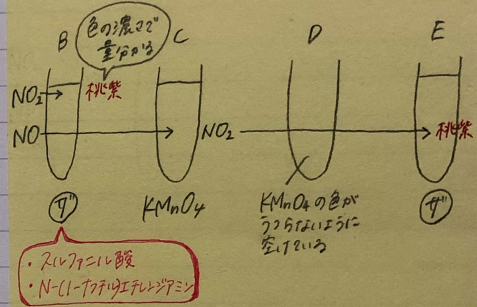 B
色の濃さで
量分かる
C
D
E
NO₂
桃紫
NO
NO₂
桃紫
ザ
KMnO₄
KMnO₄の色が
うつらないように
空けている
ザ
・スルファニル酸
・N-(1-ナフチル)エチレンジアミン